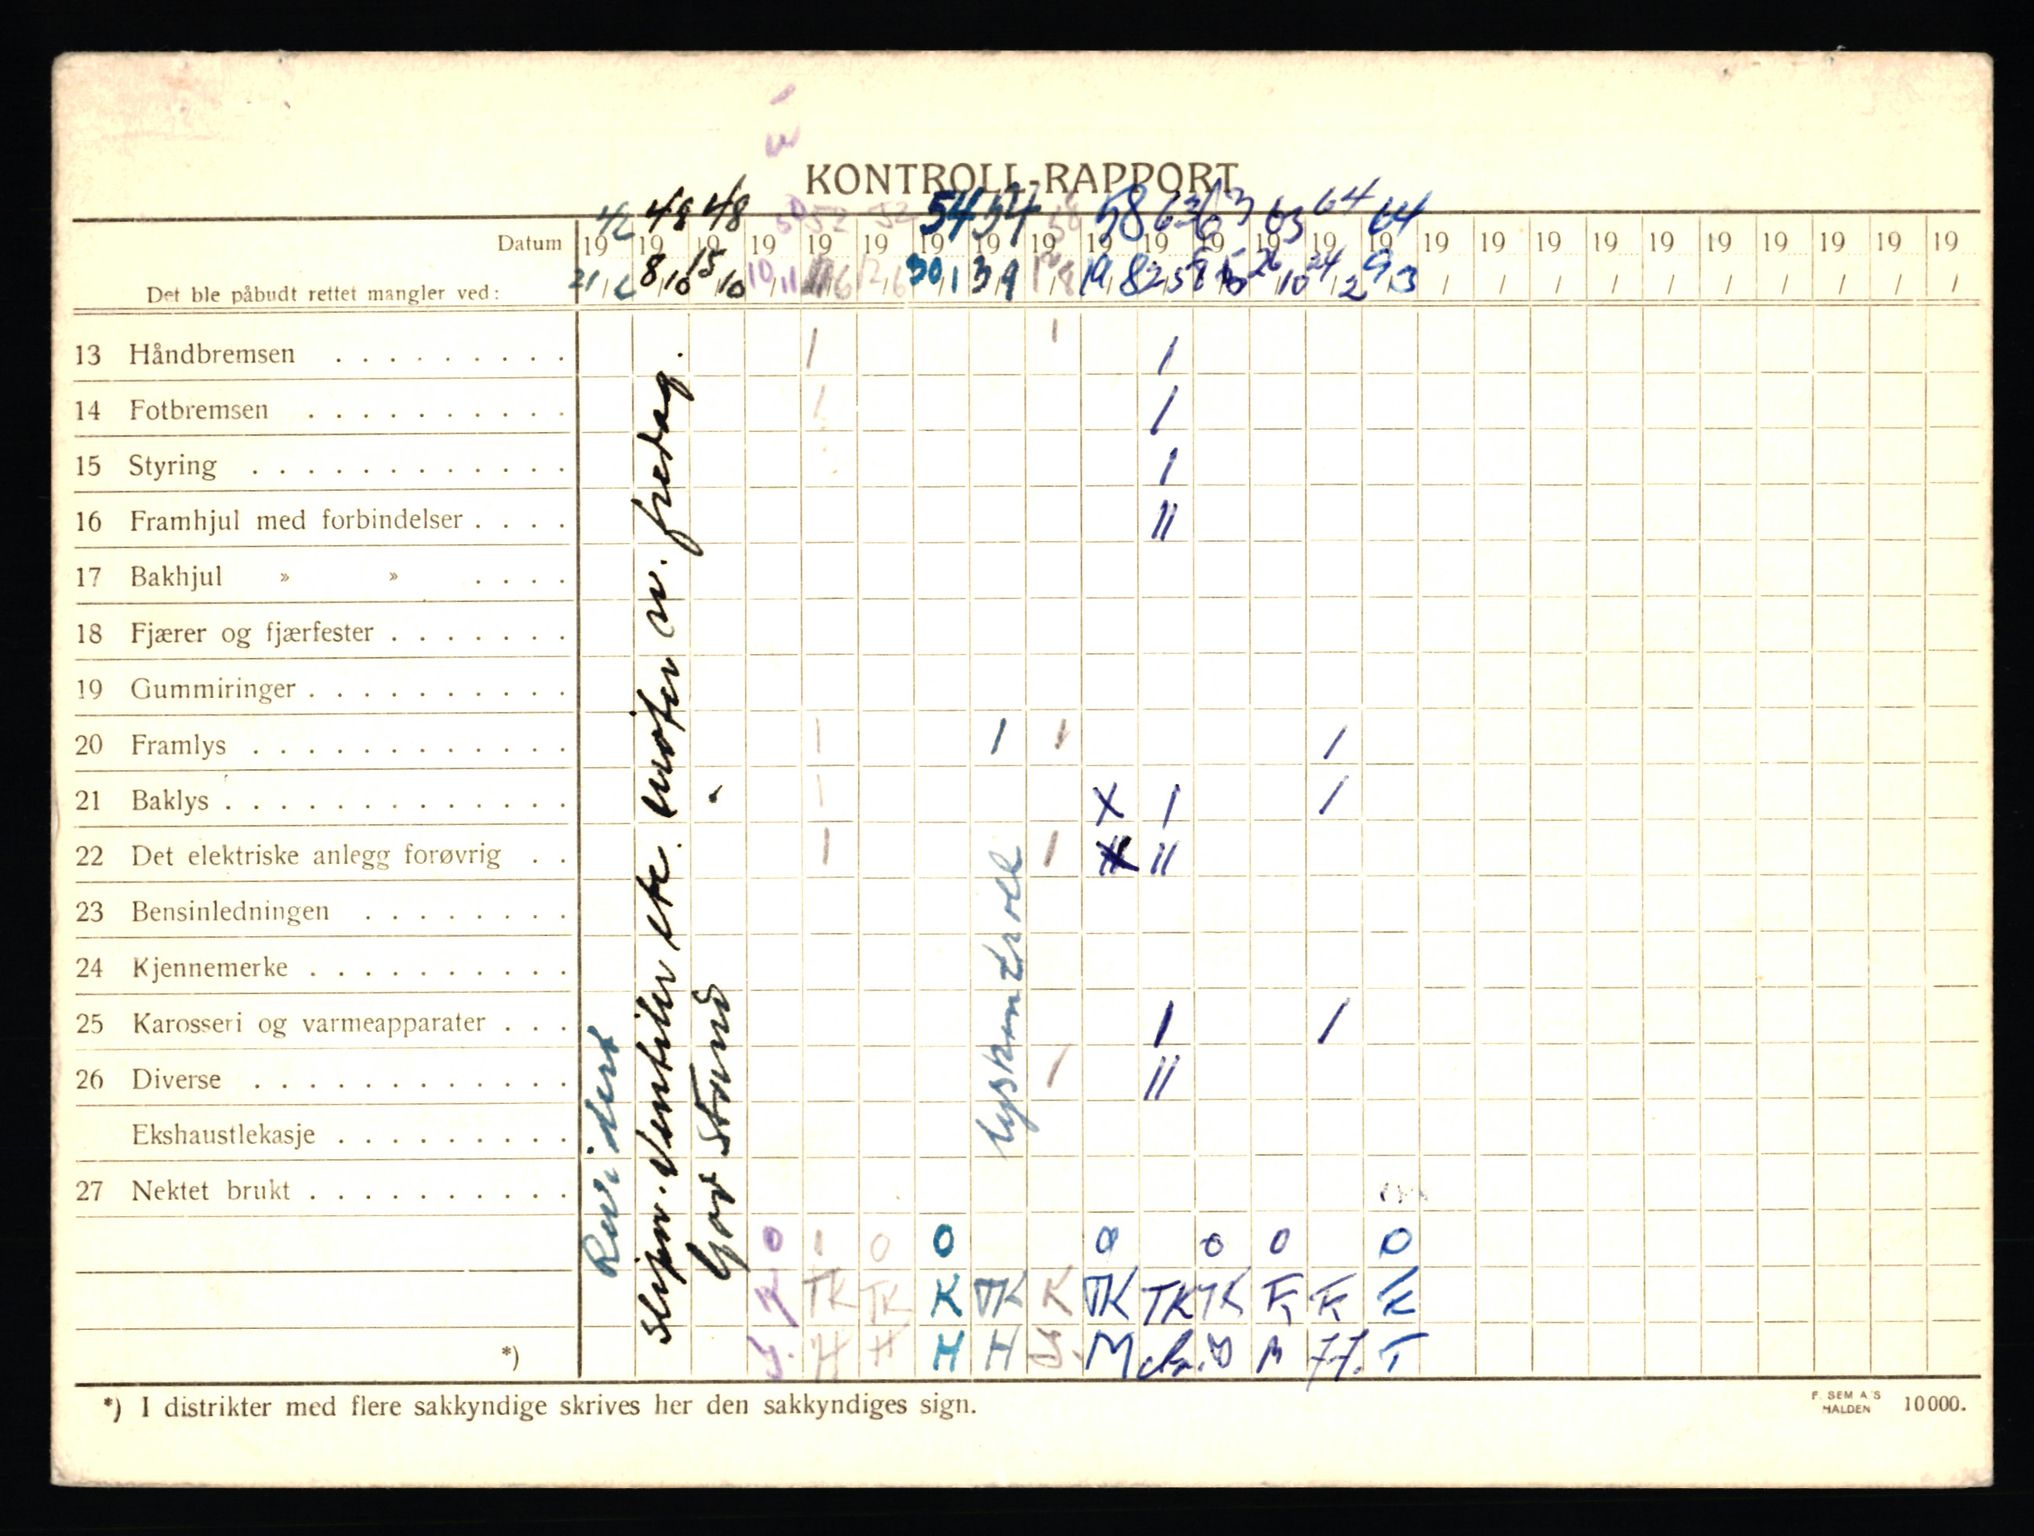 KONTROLL-RAPPORT
Datum 19 19 19 19 19 19 19 19 19 19 19 19 19 19 19 19 19 19 19 19 19 19 19 19 19
48 48 52 52 54 54 58 63 63 63 64 64
Det ble påbudt rettet mangler ved:
8/10 15/10 10/11 12/6 30/1 3/9 19/8 2/5 26/10 24/2 9/3
13 Håndbremsen . . . . . . . . . 1 1 1
14 Fotbremsen . . . . . . . . . . 1 1
15 Styring . . . . . . . . . . . . 1
16 Framhjul med forbindelser . . . . 11
17 Bakhjul » » . . . .
18 Fjærer og fjærfester . . . . . . .
19 Gummiringer . . . . . . . . . .
20 Framlys . . . . . . . . . . . . 1 1 1 1
21 Baklys . . . . . . . . . . . . . 1 X 1 1
22 Det elektriske anlegg forøvrig . . 1 1 11
23 Bensinledningen . . . . . . . .
24 Kjennemerke . . . . . . . . . .
25 Karosseri og varmeapparater . . . 1 1
26 Diverse . . . . . . . . . . . . 1 11
Ekshaustlekasje . . . . . . . . .
27 Nektet brukt . . . . . . . . . .
Revidert
Slipn. Ventiler etc. møter m. fredag.
Gor stand
lyskontroll
0 1 0 0 0 0 0 0
TK TK K TK K TK TK TK
*) H H H H M M T
*) I distrikter med flere sakkyndige skrives her den sakkyndiges sign.
F. SEM A/S
HALDEN
10000.